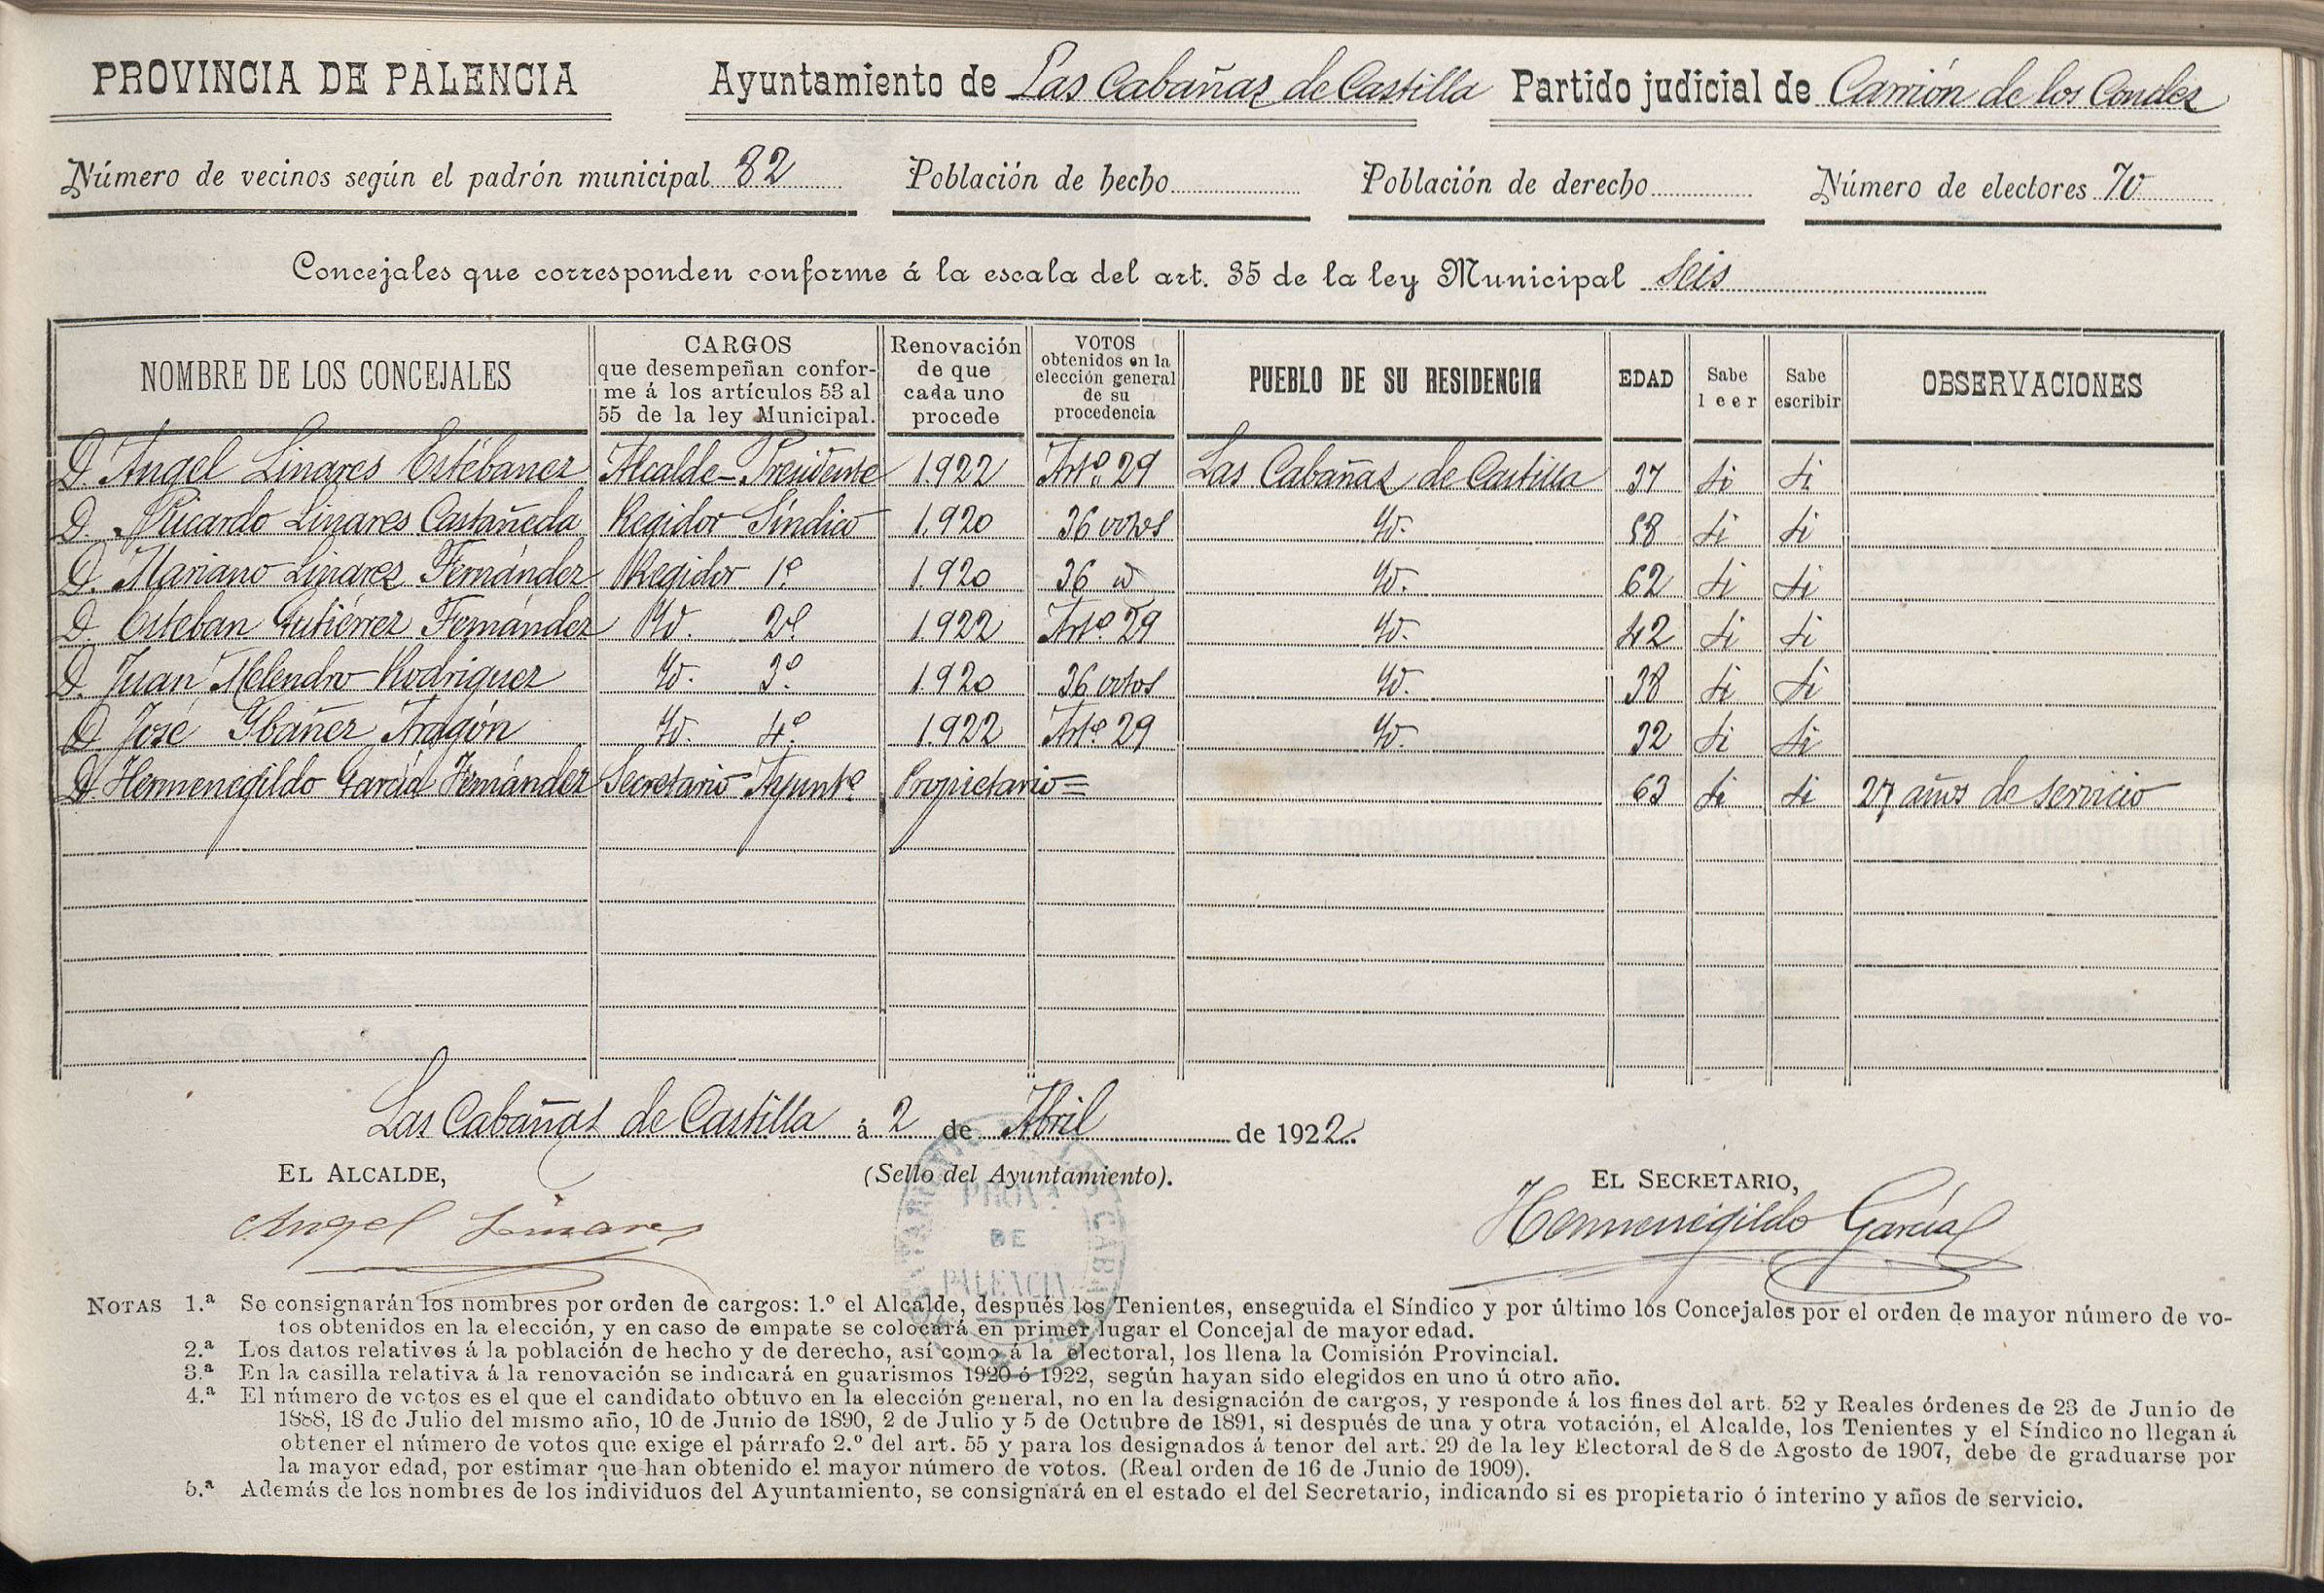 PROVINCIA DE PALENCIA Ayuntamiento de Las Cabañas de Castilla Partido judicial de Carrión de los Condes
Número de vecinos según el padrón municipal 82 Población de hecho Población de derecho Número de electores 70
Concejales que corresponden conforme á la escala del art. 35 de la ley Municipal Seis
NOMBRE DE LOS CONCEJALES
CARGOS
que desempeñan confor-
me á los artículos 53 al
55 de la ley Municipal.
Renovación
de que
cada uno
procede
VOTOS
obtenidos en la
elección general
de su
procedencia
PUEBLO DE SU RESIDENCIA
EDAD
Sabe
leer
Sabe
escribir
OBSERVACIONES
D. Angel Linares Estébanez Alcalde-Presidente 1.922 Artº 29 Las Cabañas de Castilla 37 Si Si
D. Ricardo Linares Castañeda Regidor Síndico 1.920 36 votos Yd. 58 Si Si
D. Mariano Linares Fernández Regidor 1º 1.920 36 id Yd. 62 Si Si
D. Esteban Gutiérrez Fernández Yd. 2º 1.922 Artº 29 Yd. 42 Si Si
D. Juan Melendro Rodríguez Yd. 3º 1.920 36 votos Yd. 38 Si Si
D. José Ybáñez Aragón Yd. 4º 1.922 Artº 29 Yd. 32 Si Si
D. Hermenegildo García Fernández Secretario Ayuntº Propietario= 63 Si Si 27 años de servicio
Las Cabañas de Castilla á 2 de Abril de 1922.
EL ALCALDE, (Sello del Ayuntamiento). EL SECRETARIO,
Angel Linares Hermenegildo García
PROVª
DE
PALENCIA
NOTAS 1.ª Se consignarán los nombres por orden de cargos: 1.º el Alcalde, después los Tenientes, enseguida el Síndico y por último los Concejales por el orden de mayor número de vo-
tos obtenidos en la elección, y en caso de empate se colocará en primer lugar el Concejal de mayor edad.
2.ª Los datos relativos á la población de hecho y de derecho, así como á la electoral, los llena la Comisión Provincial.
3.ª En la casilla relativa á la renovación se indicará en guarismos 1920 ó 1922, según hayan sido elegidos en uno ú otro año.
4.ª El número de votos es el que el candidato obtuvo en la elección general, no en la designación de cargos, y responde á los fines del art. 52 y Reales órdenes de 23 de Junio de
1888, 18 de Julio del mismo año, 10 de Junio de 1890, 2 de Julio y 5 de Octubre de 1891, si después de una y otra votación, el Alcalde, los Tenientes y el Síndico no llegan á
obtener el número de votos que exige el párrafo 2.º del art. 55 y para los designados á tenor del art. 29 de la ley Electoral de 8 de Agosto de 1907, debe de graduarse por
la mayor edad, por estimar que han obtenido el mayor número de votos. (Real orden de 16 de Junio de 1909).
5.ª Además de los nombres de los individuos del Ayuntamiento, se consignará en el estado el del Secretario, indicando si es propietario ó interino y años de servicio.